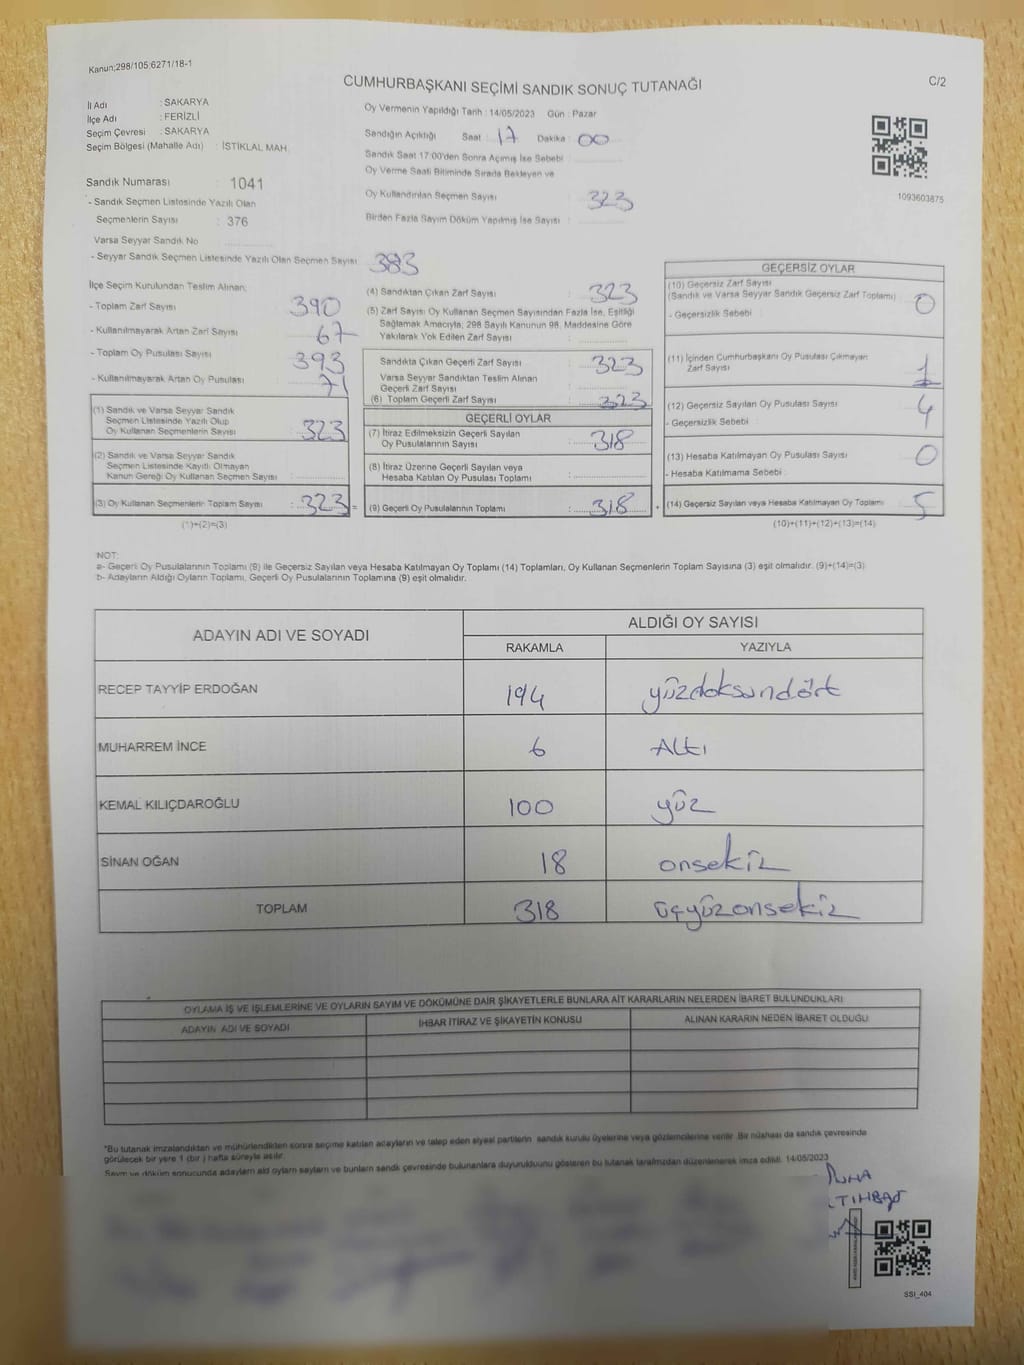 Kanun;298/105;6271/18-1
CUMHURBAŞKANI SEÇİMİ SANDIK SONUÇ TUTANAĞI
C/2
İl Adı : SAKARYA
İlçe Adı : FERİZLİ
Seçim Çevresi : SAKARYA
Seçim Bölgesi (Mahalle Adı) : İSTİKLAL MAH.
Sandık Numarası : 1041
- Sandık Seçmen Listesinde Yazılı Olan
Seçmenlerin Sayısı : 376
Varsa Seyyar Sandık No
- Seyyar Sandık Seçmen Listesinde Yazılı Olan Seçmen Sayısı 383
Oy Vermenin Yapıldığı Tarih : 14/05/2023 Gün : Pazar
Sandığın Açıldığı Saat : 17 Dakika : 00
Sandık Saat 17:00'den Sonra Açılmış İse Sebebi
Oy Verme Saati Bitiminde Sırada Bekleyen ve
Oy Kullandırılan Seçmen Sayısı : 323
Birden Fazla Sayım Döküm Yapılmış İse Sayısı :
1093603875
İlçe Seçim Kurulundan Teslim Alınan;
- Toplam Zarf Sayısı : 390
- Kullanılmayarak Artan Zarf Sayısı : 67
- Toplam Oy Pusulası Sayısı : 393
- Kullanılmayarak Artan Oy Pusulası : 71
(1) Sandık ve Varsa Seyyar Sandık
Seçmen Listesinde Yazılı Olup
Oy Kullanan Seçmenlerin Sayısı : 323
(2) Sandık ve Varsa Seyyar Sandık
Seçmen Listesinde Kayıtlı Olmayan
Kanun Gereği Oy Kullanan Seçmen Sayısı :
(3) Oy Kullanan Seçmenlerin Toplam Sayısı : 323 =
(1)+(2)=(3)
(4) Sandıktan Çıkan Zarf Sayısı : 323
(5) Zarf Sayısı Oy Kullanan Seçmen Sayısından Fazla İse, Eşitliği
Sağlamak Amacıyla; 298 Sayılı Kanunun 98. Maddesine Göre
Yakılarak Yok Edilen Zarf Sayısı :
Sandıkta Çıkan Geçerli Zarf Sayısı : 323
Varsa Seyyar Sandıktan Teslim Alınan
Geçerli Zarf Sayısı :
(6) Toplam Geçerli Zarf Sayısı : 323
GEÇERLİ OYLAR
(7) İtiraz Edilmeksizin Geçerli Sayılan
Oy Pusulalarının Sayısı : 318
(8) İtiraz Üzerine Geçerli Sayılan veya
Hesaba Katılan Oy Pusulası Toplamı :
(9) Geçerli Oy Pusulalarının Toplamı : 318 +
GEÇERSİZ OYLAR
(10) Geçersiz Zarf Sayısı
(Sandık ve Varsa Seyyar Sandık Geçersiz Zarf Toplamı) : 0
- Geçersizlik Sebebi :
(11) İçinden Cumhurbaşkanı Oy Pusulası Çıkmayan
Zarf Sayısı : 1
(12) Geçersiz Sayılan Oy Pusulası Sayısı : 4
- Geçersizlik Sebebi :
(13) Hesaba Katılmayan Oy Pusulası Sayısı : 0
- Hesaba Katılmama Sebebi :
(14) Geçersiz Sayılan veya Hesaba Katılmayan Oy Toplamı : 5
(10)+(11)+(12)+(13)=(14)
NOT:
a- Geçerli Oy Pusulalarının Toplamı (9) ile Geçersiz Sayılan veya Hesaba Katılmayan Oy Toplamı (14) Toplamları, Oy Kullanan Seçmenlerin Toplam Sayısına (3) eşit olmalıdır. (9)+(14)=(3)
b- Adayların Aldığı Oyların Toplamı, Geçerli Oy Pusulalarının Toplamına (9) eşit olmalıdır.
ADAYIN ADI VE SOYADI ALDIĞI OY SAYISI
RAKAMLA YAZIYLA
RECEP TAYYİP ERDOĞAN 194 yüzdoksandört
MUHARREM İNCE 6 Altı
KEMAL KILIÇDAROĞLU 100 yüz
SİNAN OĞAN 18 onsekiz
TOPLAM 318 üçyüzonsekiz
OYLAMA İŞ VE İŞLEMLERİNE VE OYLARIN SAYIM VE DÖKÜMÜNE DAİR ŞİKAYETLERLE BUNLARA AİT KARARLARIN NELERDEN İBARET BULUNDUKLARI
ADAYIN ADI VE SOYADI İHBAR İTİRAZ VE ŞİKAYETİN KONUSU ALINAN KARARIN NEDEN İBARET OLDUĞU
*Bu tutanak imzalandıktan ve mühürlendikten sonra seçime katılan adayların ve talep eden siyasi partilerin sandık kurulu üyelerine veya gözlemcilerine verilir. Bir nüshası da sandık çevresinde
görülecek bir yere 1 (bir) hafta süreyle asılır.
Sayım ve döküm sonucunda adayların aldığı oyların sayıları ve bunların sandık çevresinde bulunanlara duyurulduğunu gösteren bu tutanak tarafımızdan düzenlenerek imza edildi. 14/05/2023
SSİ_404